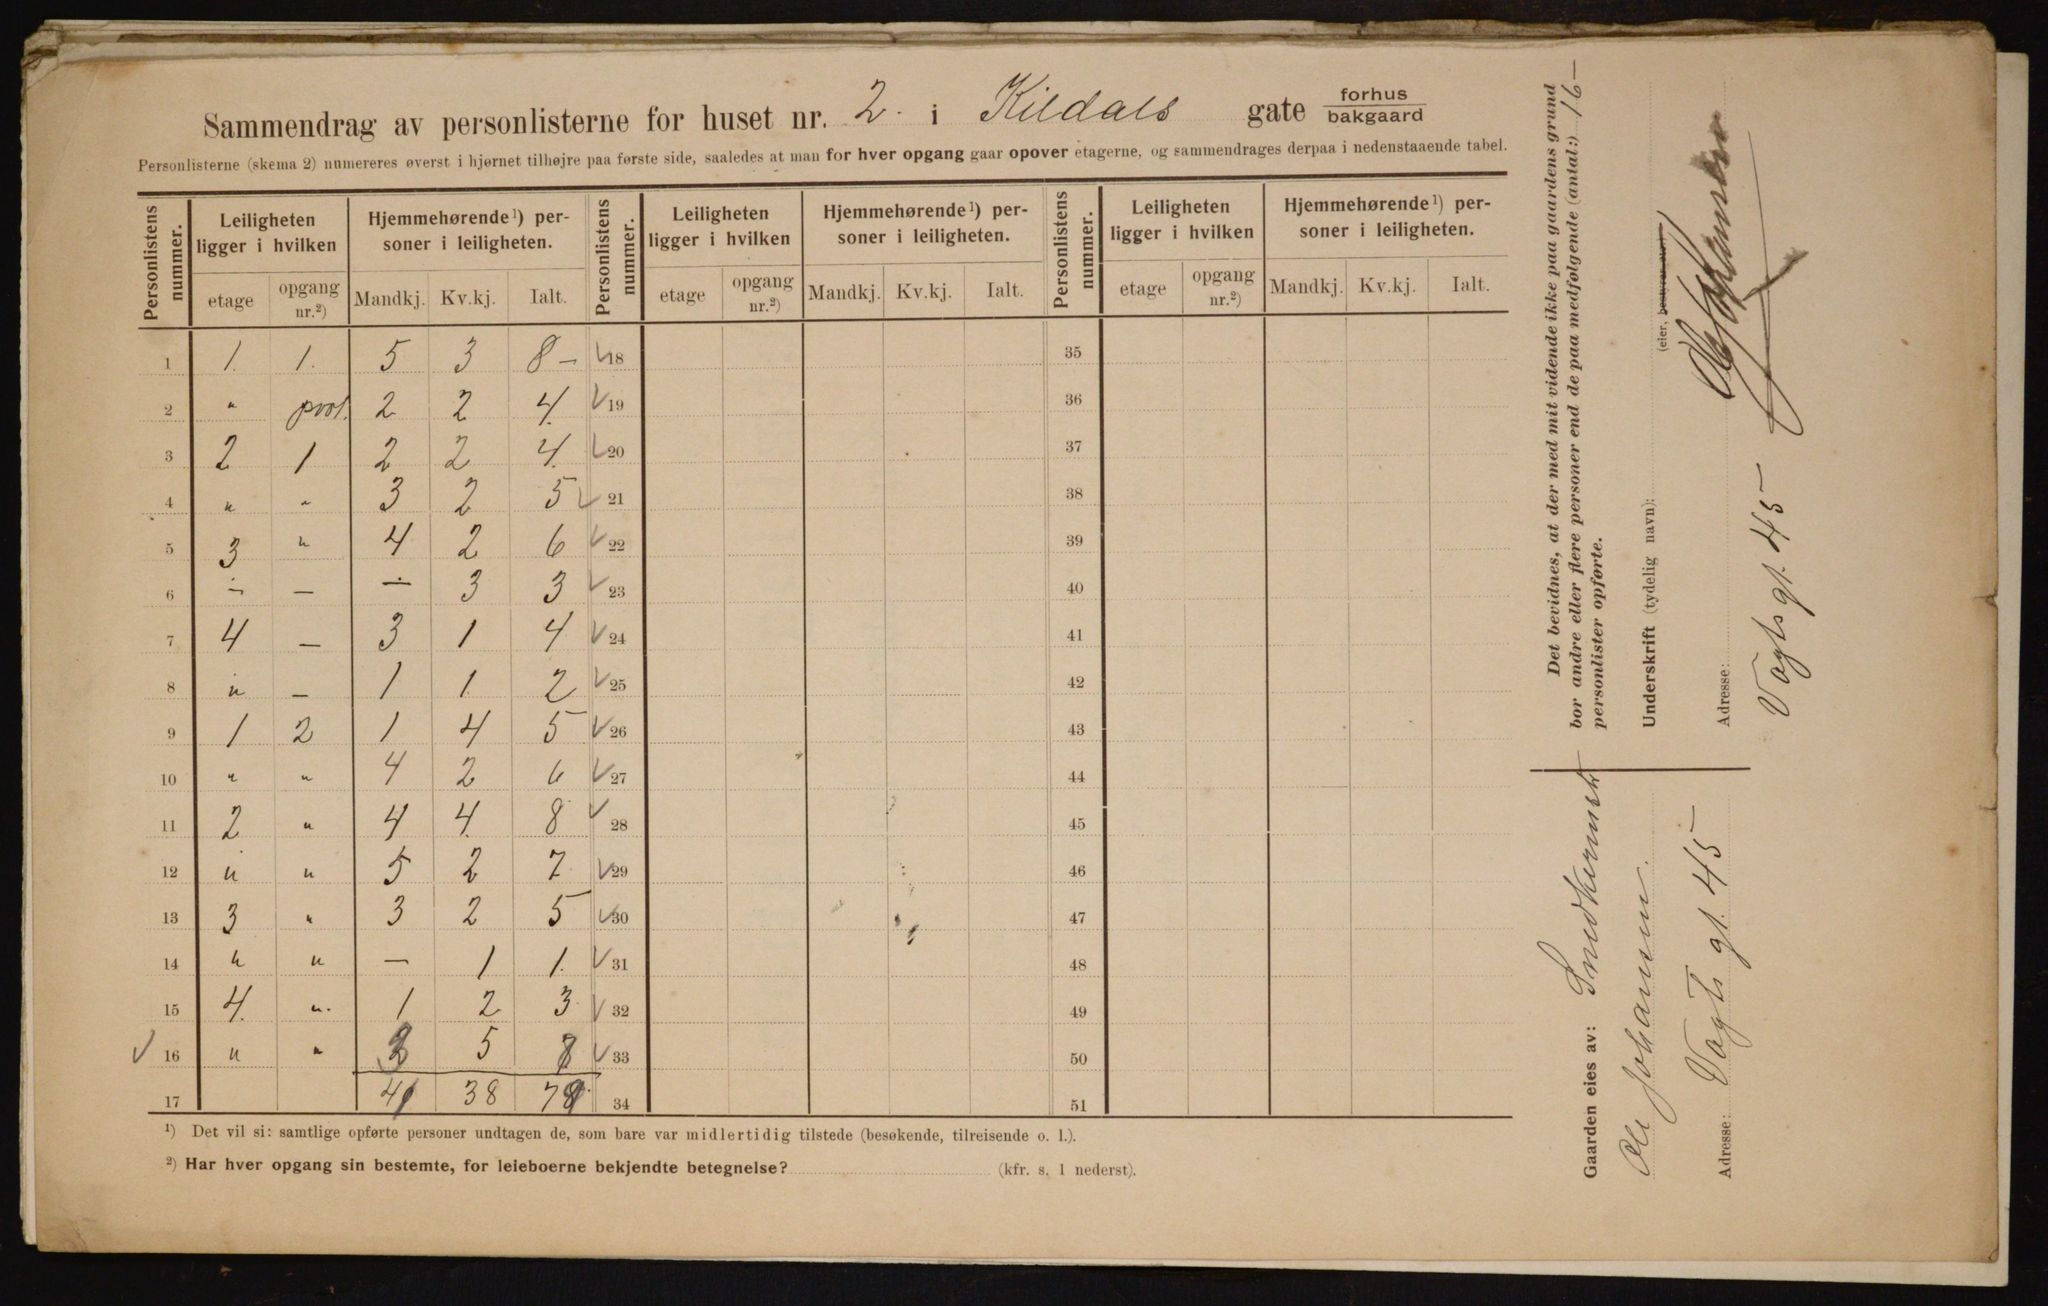 Sammendrag av personlisterne for huset nr. 2. i Kildals gate forhus bakgaard
Personlisterne (skema 2) numereres øverst i hjørnet tilhøjre paa første side, saaledes at man for hver opgang gaar opover etagerne, og sammendrages derpaa i nedenstaaende tabel.
Personlistens nummer. Leiligheten ligger i hvilken Hjemmehørende¹) personer i leiligheten. Personlistens nummer. Leiligheten ligger i hvilken Hjemmehørende¹) personer i leiligheten. Personlistens nummer. Leiligheten ligger i hvilken Hjemmehørende¹) personer i leiligheten.
etage opgang nr.²) Mandkj. Kv.kj. Ialt. etage opgang nr.²) Mandkj. Kv.kj. Ialt. etage opgang nr.²) Mandkj. Kv.kj. Ialt.
1 1. 1. 5 3 8 – 18 35
2 " 2 2 4. 19 36
3 2 1 2 2 4. 20 37
4 " " 3 2 5 21 38
5 3 " 4 2 6 22 39
6 – – – 3 3 23 40
7 4 – 3 1 4 24 41
8 " – 1 1. 2 25 42
9 1 2 1 4 5 26 43
10 " " 4 2 6 27 44
11 2 " 4 4. 8 28 45
12 " " 5 2 7 29 46
13 3 " 3 2 5 30 47
14 " " – 1 1. 31 48
15 4. " 1 2 3 32 49
16 " " 3 5 8 33 50
17 41 38 79 34 51
¹) Det vil si: samtlige opførte personer undtagen de, som bare var midlertidig tilstede (besøkende, tilreisende o. l.).
²) Har hver opgang sin bestemte, for leieboerne bekjendte betegnelse? (kfr. s. 1 nederst).
Det bevidnes, at der med mit vidende ikke paa gaardens grund
bor andre eller flere personer end de paa medfølgende (antal:) 16 –
personlister opførte.
Underskrift (tydelig navn):
(eier, bestyrer o.s.v.)
Ole Johansen
Adresse:
Vogts gt. 45
Gaarden eies av: Snedkermester
Ole Johansen.
Adresse: Vogts gt. 45